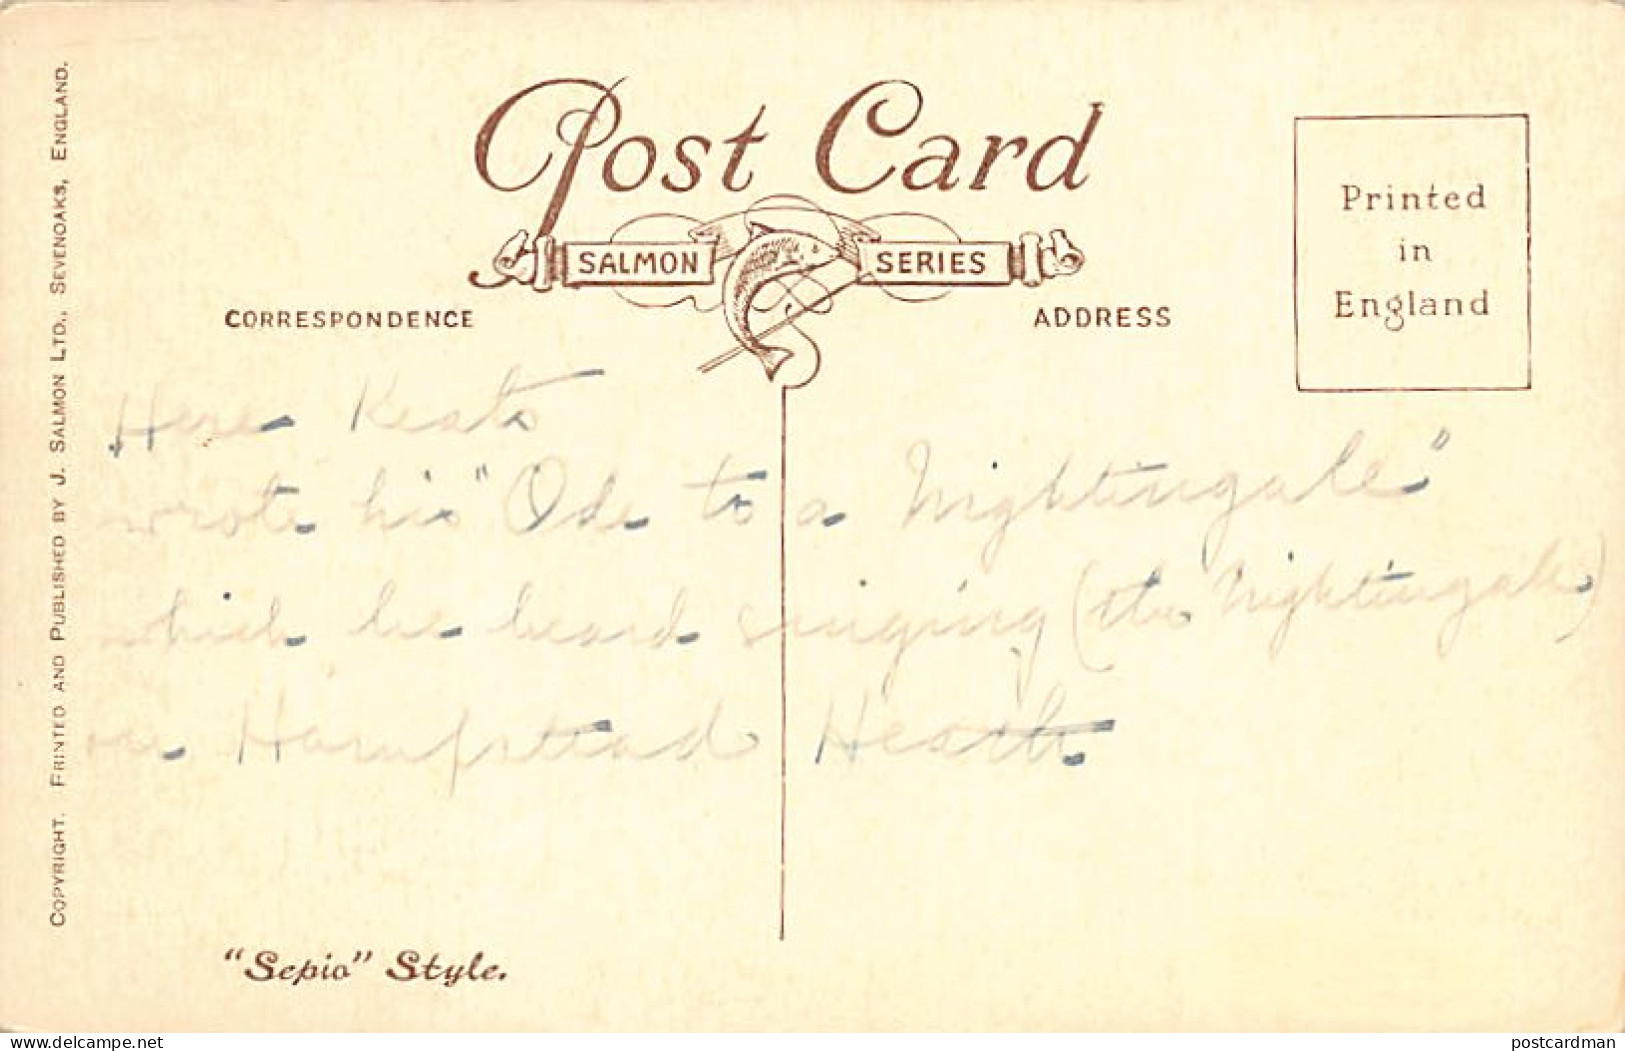 Post Card
SALMON SERIES
CORRESPONDENCE
ADDRESS
Printed
in
England
COPYRIGHT. PRINTED AND PUBLISHED BY J. SALMON LTD., SEVENOAKS, ENGLAND.
Here Keats
wrote his "Ode to a Nightingale"
which he heard singing (the Nightingale)
on Hampstead Heath
"Sepio" Style.
delcampe.net
postcardman